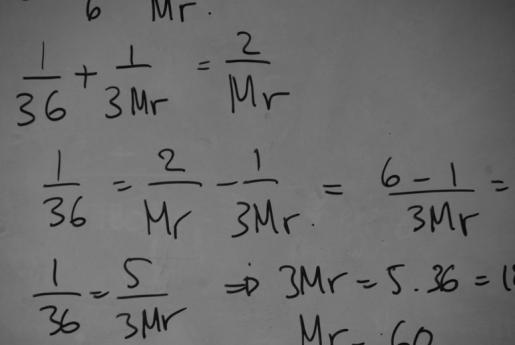 6 Mr.
1/36 + 1/3Mr = 2/Mr
1/36 = 2/Mr - 1/3Mr. = 6-1/3Mr =
1/36 = 5/3Mr ⇒ 3Mr = 5.36 =
Mr 60